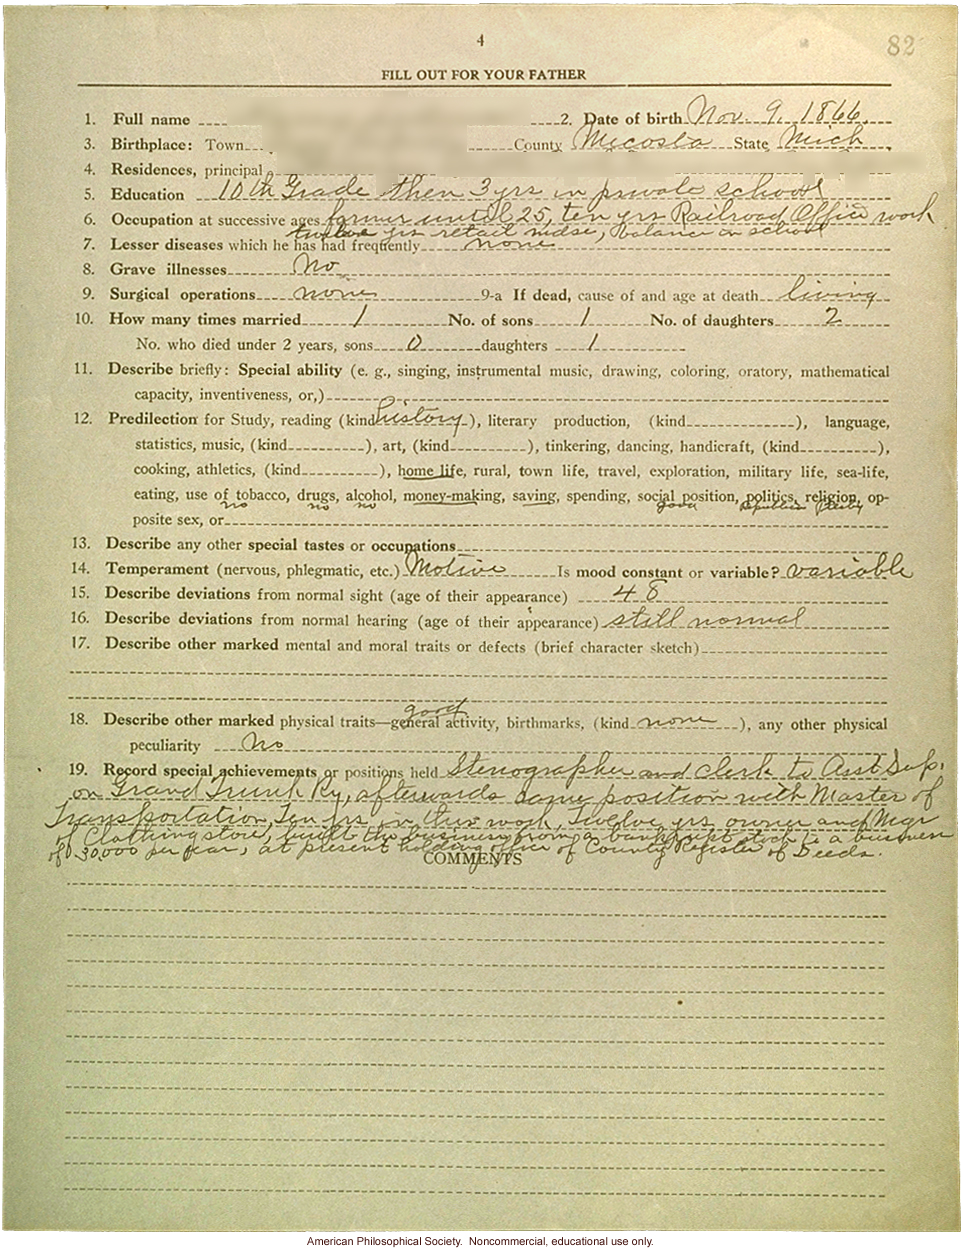 4
82
FILL OUT FOR YOUR FATHER
1. Full name 2. Date of birth Nov. 9. 1866.
3. Birthplace: Town County Mecosta State Mich
4. Residences, principal
5. Education 10th Grade then 3 yrs in private school
6. Occupation at successive ages farmer until 25, ten yrs Railroad Office work
twelve yrs retail mdse, balance in school
7. Lesser diseases which he has had frequently none
8. Grave illnesses No
9. Surgical operations none 9-a If dead, cause of and age at death living
10. How many times married 1 No. of sons 1 No. of daughters 2
No. who died under 2 years, sons 0 daughters 1
11. Describe briefly: Special ability (e. g., singing, instrumental music, drawing, coloring, oratory, mathematical
capacity, inventiveness, or,)
12. Predilection for Study, reading (kind history), literary production, (kind), language,
statistics, music, (kind), art, (kind), tinkering, dancing, handicraft, (kind),
cooking, athletics, (kind), home life, rural, town life, travel, exploration, military life, sea-life,
eating, use of tobacco, drugs, alcohol, money-making, saving, spending, social position, politics, religion, op-
no no no good Republican Presby
posite sex, or
13. Describe any other special tastes or occupations
14. Temperament (nervous, phlegmatic, etc.) Motive Is mood constant or variable? variable
15. Describe deviations from normal sight (age of their appearance) 48
16. Describe deviations from normal hearing (age of their appearance) still normal
17. Describe other marked mental and moral traits or defects (brief character sketch)
good
18. Describe other marked physical traits—general activity, birthmarks, (kind none), any other physical
peculiarity No
19. Record special achievements or positions held Stenographer and clerk to Asst Sup.
on Grand Trunk Ry, afterwards same position with Master of
Transportation, Ten yrs in this work, Twelve yrs owner and Mgr
of Clothing store, built the business from a bankrupt stock to a business
of 30,000 per year, at present holding office of County Register of Deeds.
COMMENTS
American Philosophical Society. Noncommercial, educational use only.